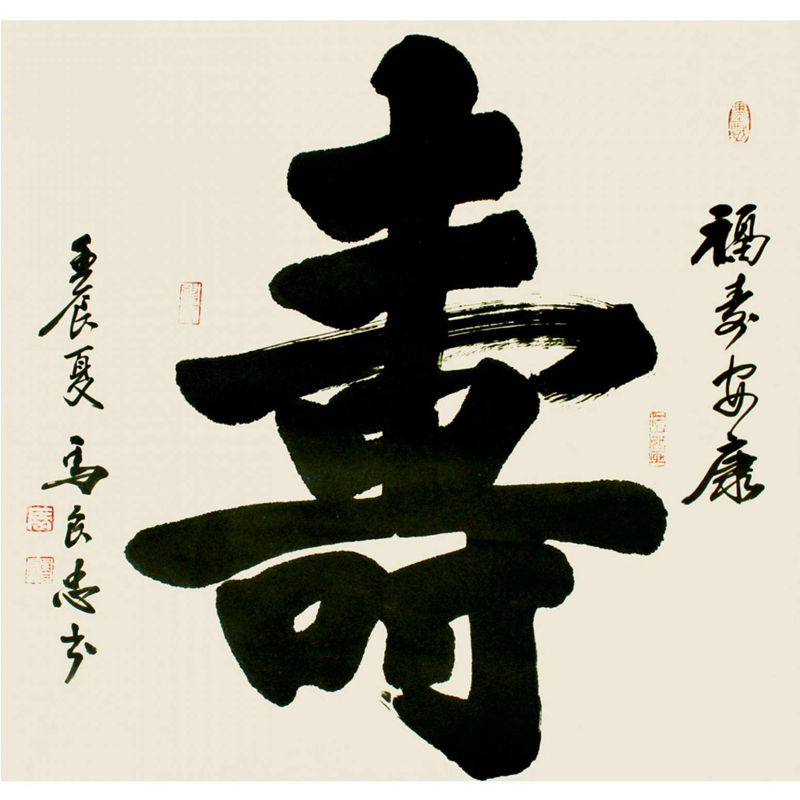 福寿安康
壽
壬辰夏
馬良忠书